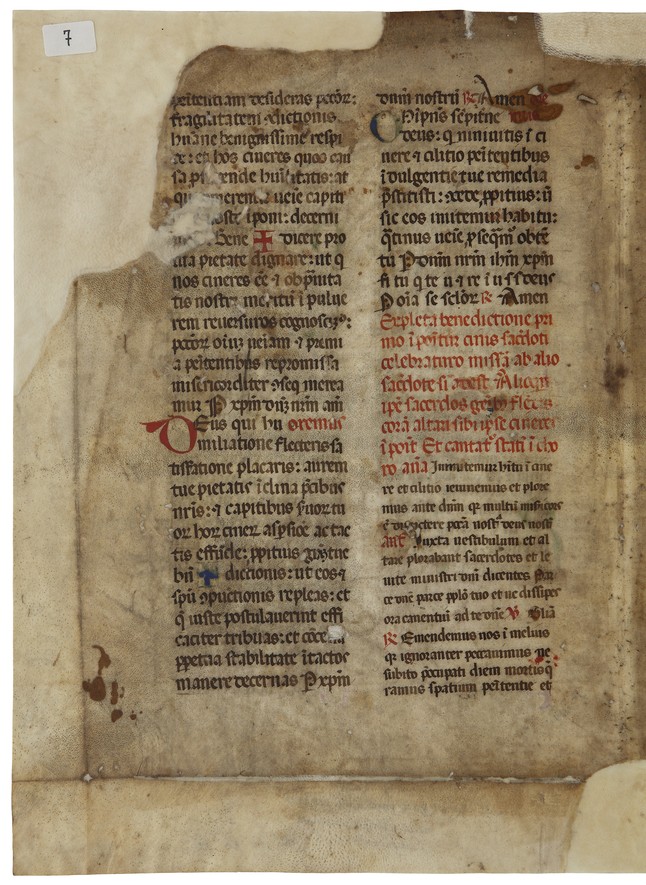 7
penitentiam desideras peccor:
fragilitatem ꝯdictionis
huane benignissime respi
ce: et hos cineres quos cau
sa
capiti
iponi: decerni
Bene ✠ dicere pro
tua pietate dignare: ut q
nos cineres ee ⁊ ob pniuta
tis nostre meritu i pulue
rem reuersuros cognoscim:
pccor oim ueiam ⁊ premi
a penitentibus repromissa
misericorditer ꝯseq merea
mur P xpm dnz nrm am
Deus qui hu oremus
miliatione flecteris sa
tisfatione placaris: aurem
tue pietatis iclina pcibus
nris: ⁊ capitibus suor tu
or hor ciner aspsioe ac tac
tis effude: ppitius gram tue
bn ✝ dictionis: ut eos ⁊
spu ꝯpuctionis repleas: et
q iuste postulauerint effi
caciter tribuas: et coce
ppetua stabilitate itactos
manere decernas P xpm
dnm nostru R Amen
Omnips sepitne
deus: q niniuitis i ci
nere ⁊ cilitio penitentibus
idulgentie tue remedia
pstitisti: ꝯcede ppitius: ut
sic eos imitemur habitu:
qtinus ueie pseqm obte
tu P dnm nrm ihm xpm
fi tu q te u ⁊ re i u s s deus
P oia se selor R Amen
Expleta benedictione pri
mo iponitur cinis sacdoti
celebraturo missa ab alio
sacdote si adest Alioqn
ipe sacerdos genu flexis
cora altari sibi ipse cineres
iponit Et cantat stati i cho
ro ana Inmutemur hitu i cine
re et cilitio ieiunemus et plore
mus ante dnm qr multu misicors
e dimictere pcca nostra deus noster
ant Iuxta uestibulum et al
tare plorabant sacerdotes et le
uite ministri dni dicentes Par
ce dne parce pplo tuo et ne dissipes
ora canentiu ad te dne V Glia
R Emendemus nos i melius
qr ignoranter peccauimus ne
subito pocupati diem mortis q
ramus spatium penitentie et